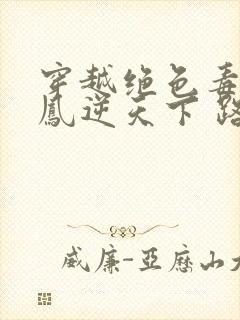 穿越绝色毒
鳳逆天下 路
威廉-亞歷山大